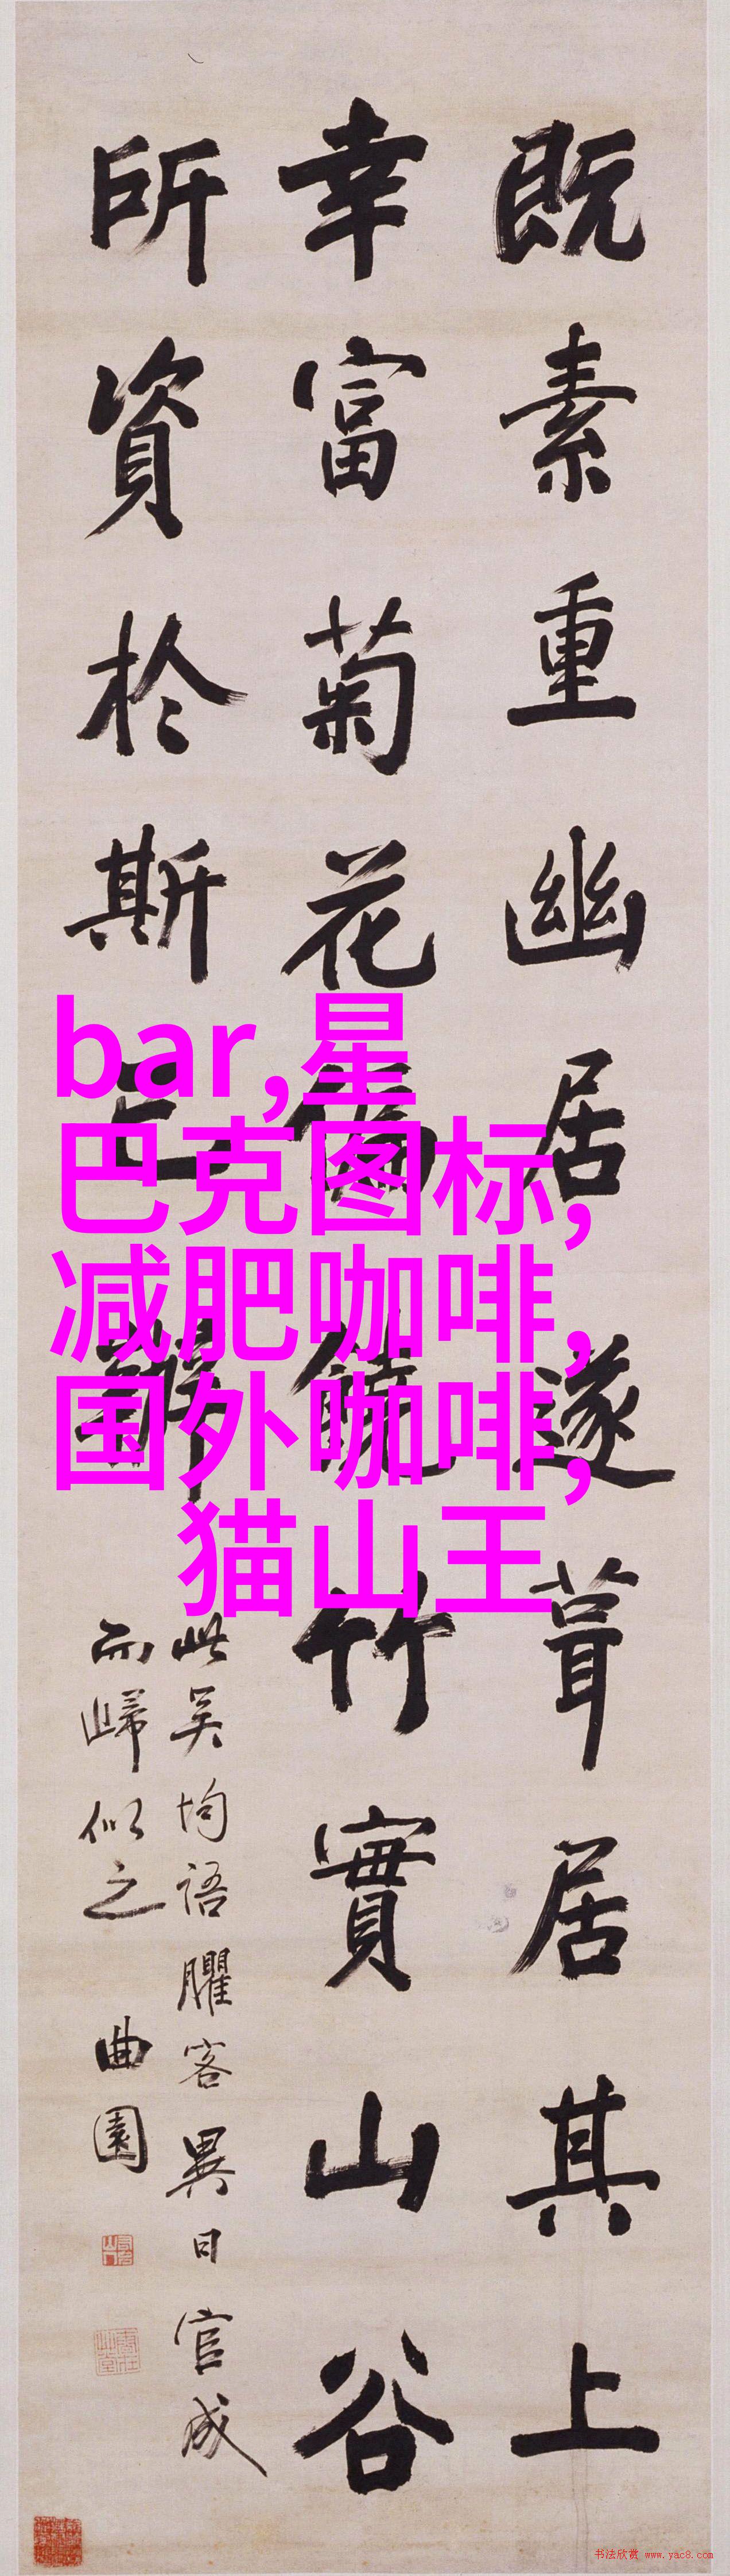 既素重幽居遂葺居其上
幸富菊花偏饒竹實山谷
所資於斯已辦
此吴均語臞客異日官成
而歸似之
曲園
bar,星
巴克图标,
减肥咖啡,
国外咖啡,
猫山王
书法欣赏 www.yac8.com